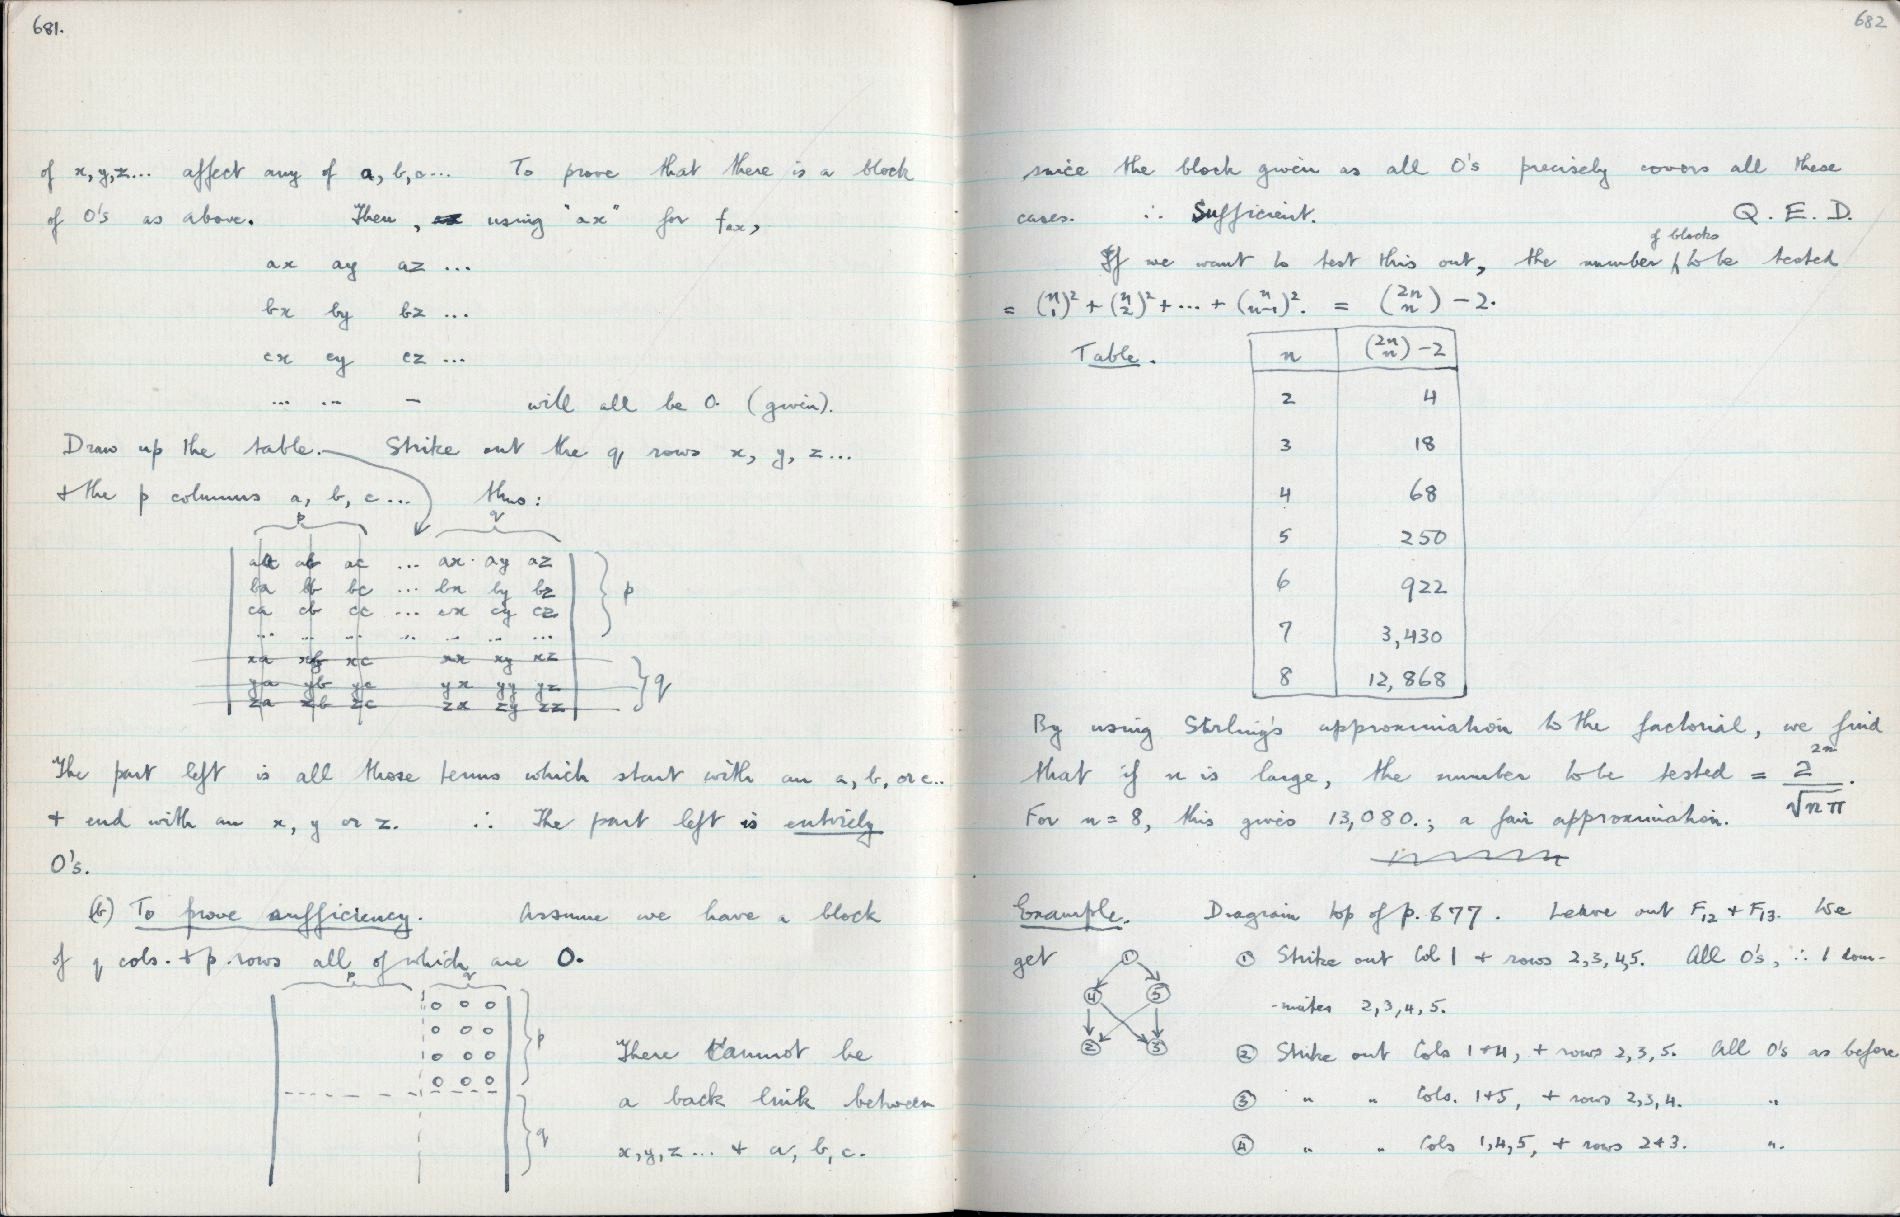 681.
of x, y, z... affect any of a, b, c... To prove that there is a block
of 0's as above. Then, using "ax" for fax,
ax ay az ...
bx by bz ...
cx cy cz ...
... ... – will all be 0. (given).
Draw up the table. Strike out the q rows x, y, z...
+ the p columns a, b, c... thus:
p q
aa ab ac ... ax ay az
ba bb bc ... bx by bz p
ca cb cc ... cx cy cz
... ... ... ... ... ... ...
xa xb xc xx xy xz
ya yb yc yx yy yz q
za zb zc zx zy zz
The part left is all those terms which start with an a, b, or c..
+ end with an x, y or z. ∴ The part left is entirely
0's.
(b) To prove sufficiency. Assume we have a block
of q cols. + p rows all of which are 0.
p q
0 0 0
0 0 0 p
0 0 0
0 0 0
q
There cannot be
a back link between
x, y, z... + a, b, c.
682
since the block given as all 0's precisely covers all these
cases. ∴ Sufficient. Q.E.D.
If we want to test this out, the number of blocks to be tested
= (n 1)² + (n 2)² + ... + (n n-1)². = (2n n) - 2.
Table. n (2n n) - 2
2 4
3 18
4 68
5 250
6 922
7 3,430
8 12,868
By using Stirling's approximation to the factorial, we find
that if n is large, the number to be tested = 2^2n / √nπ.
For n = 8, this gives 13,080.; a fair approximation.
Example. Diagram top of p. 677. Leave out F12 + F13. We
get 1 ① Strike out Col 1 + rows 2,3,4,5. All 0's, ∴ 1 dom-
4 5 -inates 2,3,4,5.
2 3 ② Strike out Cols 1+4, + rows 2,3,5. All 0's as before
③ " " Cols. 1+5, + rows 2,3,4. "
④ " " Cols 1,4,5, + rows 2+3. "